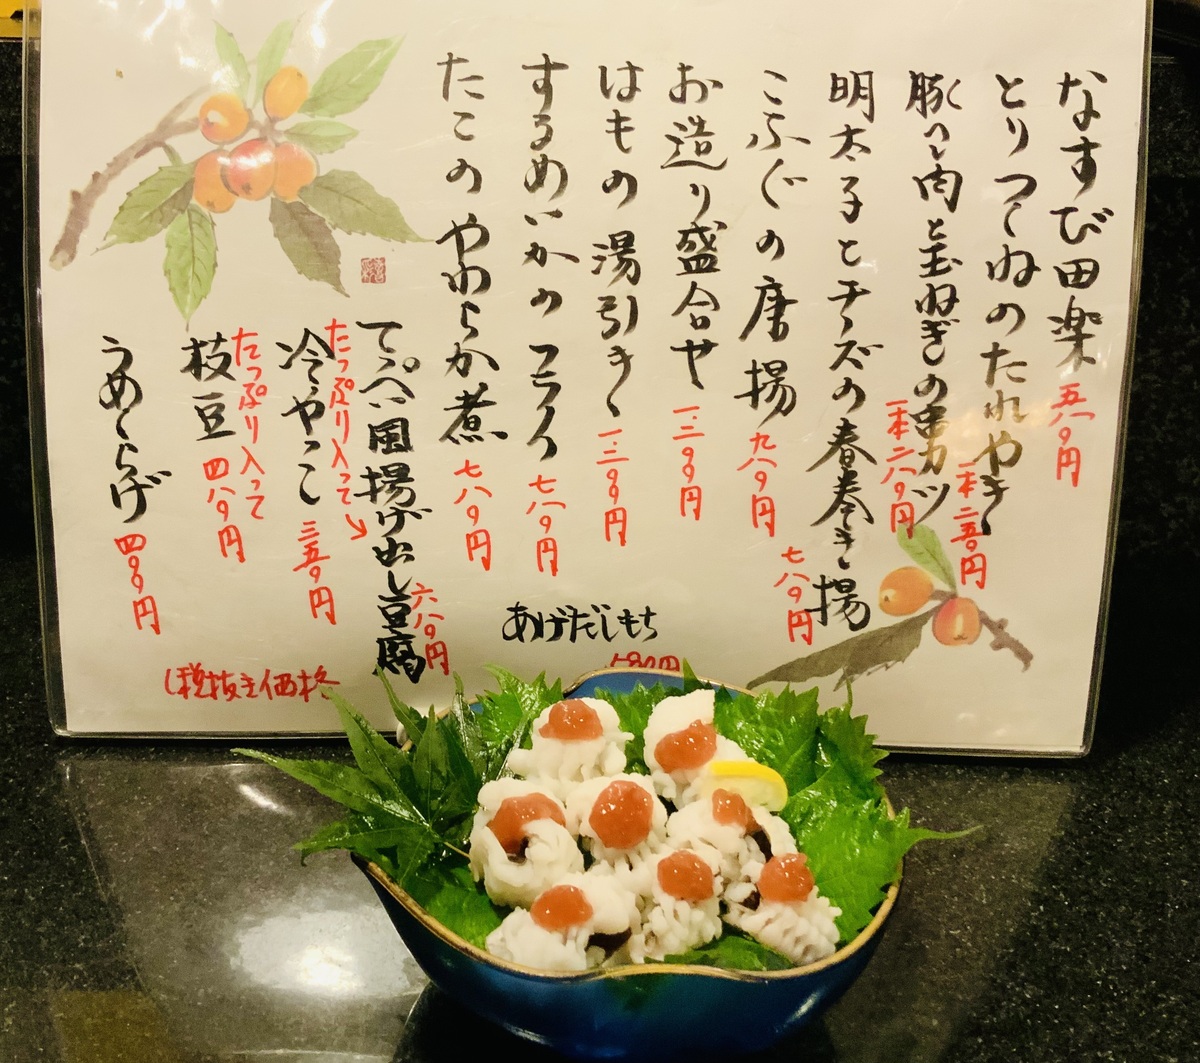 なすび田楽 五八〇円
とりつくねのたれやき 一本二五〇円
豚ヘレ肉と玉ねぎの串カツ 一本二八〇円
明太子とチーズの春巻き揚 七八〇円
こふぐの唐揚 九八〇円
お造り盛合せ
はもの湯引き
するめいかのフライ 七八〇円
たこのやわらか煮 七八〇円
あげだしもち
てっぺい風揚げ出し豆腐 六八〇円
たっぷり入って
冷やっこ 三五〇円
たっぷり入って
枝豆 四八〇円
うめくらげ 四〇〇円
税抜き価格